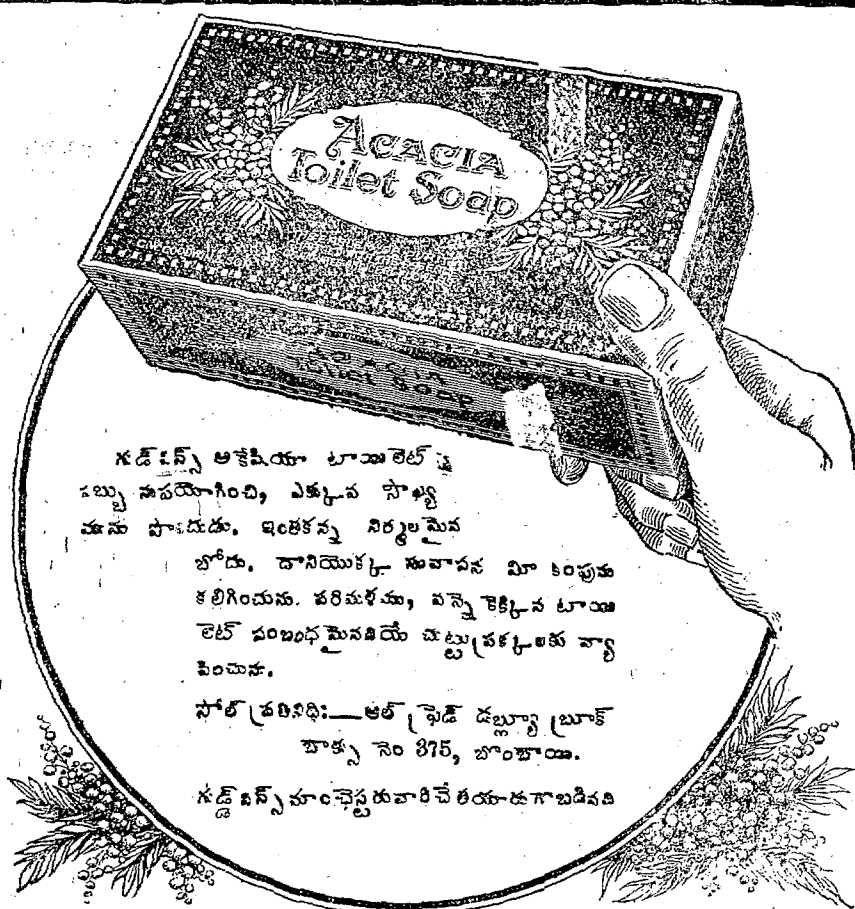 ACACIA
Toilet Soap
ACACIA
Toilet Soap
గడ్ విన్స్ అకేషియా టాయిలెట్
సబ్బు నుపయోగించి, ఎక్కువ సౌఖ్య
మును పొందుడు. ఇంతకన్న నిర్మలమైన
బోదు. దానియొక్క సువాసన మీ కింపును
కలిగించును. పరిమళము, వన్నె కెక్కిన టాయి
లెట్ సంబంధమైనదియే చుట్టుప్రక్కలకు వ్యా
పించును.
సోల్ ప్రతినిధి:—ఆల్ ఫ్రెడ్ డబ్ల్యూ బ్రూక్
బాక్సు నెం 375, బొంబాయి.
గడ్డ్ విన్స్ మాంచెస్టరువారిచే తయారుగాబడినది